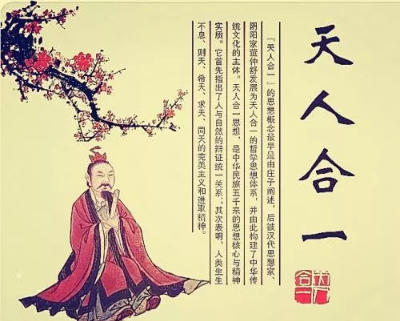 天人合一
「天人合一」的思想概念最早是由庄子阐述，后被汉代思想家、
阴阳家董仲舒发展为天人合一的哲学思想体系，并由此构建了中华传
统文化的主体。天人合一思想，是中华民族五千年来的思想核心与精神
实质。它首先指出了人与自然的辩证统一关系；其次表明，人类生生
不息、则天、希天、求天、同天的完美主义和进取精神。
天人
合一